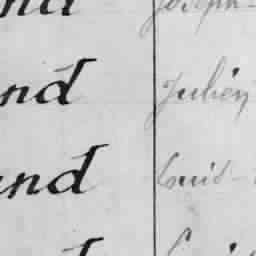 nd Joseph-
nd Julien
nd Louis-